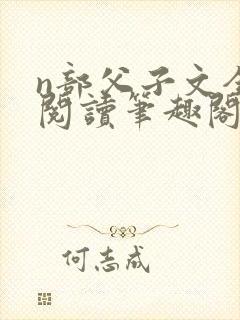 n部父子文全
閱讀筆趣閣
何志成